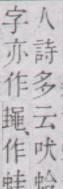 人詩多云吠蛤
字亦作蠅、作蛙